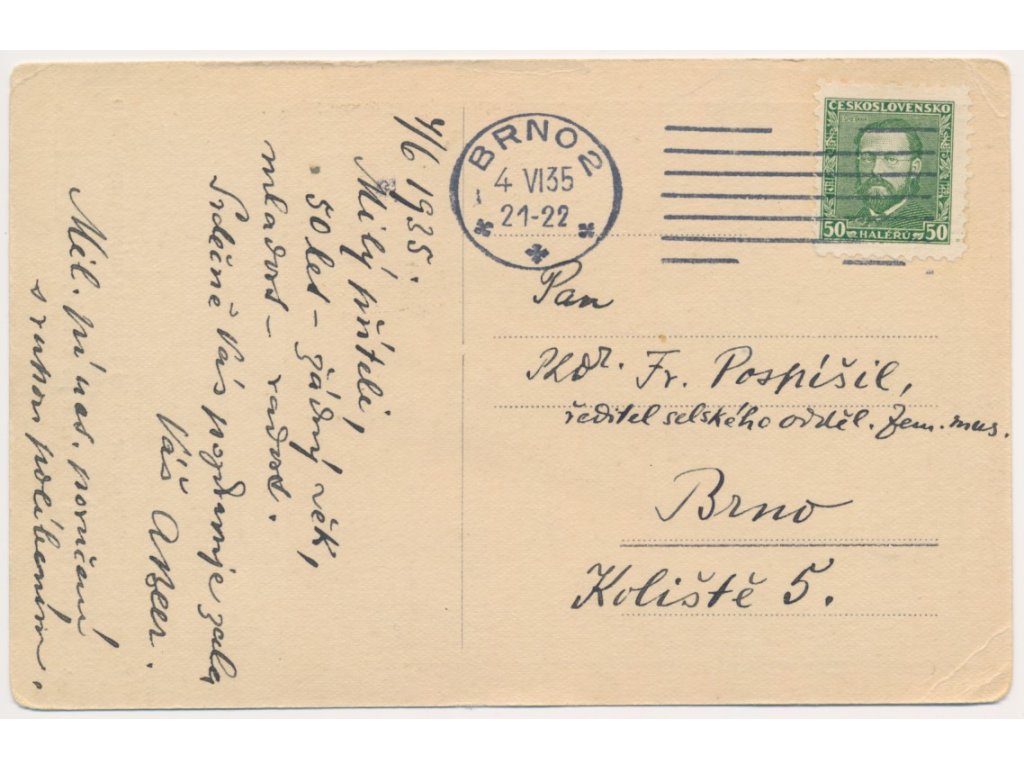 4/6 1935.
Milý příteli,
50 let – žádný věk,
mladost – radost.
Srdečně Vás pozdravuje zcela
Váš
Mil. pí uct. poručení
s rukou políbením.
BRNO 2
4 VI 35
21-22
ČESKOSLOVENSKO
50 HALÉŘŮ 50
Pan
PhDr. Fr. Pospíšil,
ředitel selského odděl. Zem. mus.
Brno
Koliště 5.